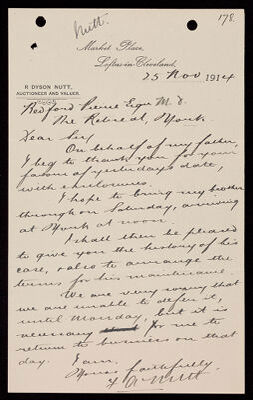 Nutt.
178.
Market Place,
Loftus-in-Cleveland,
25 Nov 1914
R DYSON NUTT,
AUCTIONEER AND VALUER.
Bedford Pierce Esqre M.D.
The Retreat, York.
Dear Sir
On behalf of my father,
I beg to thank you for your
favour of yesterdays date,
with enclosures.
I hope to bring my brother
through on Saturday, arriving
at York at noon.
I shall then be pleased
to give you the history of his
case, & also to arrange the
terms for his maintenance.
We are very sorry that
we are unable to defer it,
until Monday, but it is
necessary for me to
return to business on that
day. I am.
Yours faithfully.
Nutt